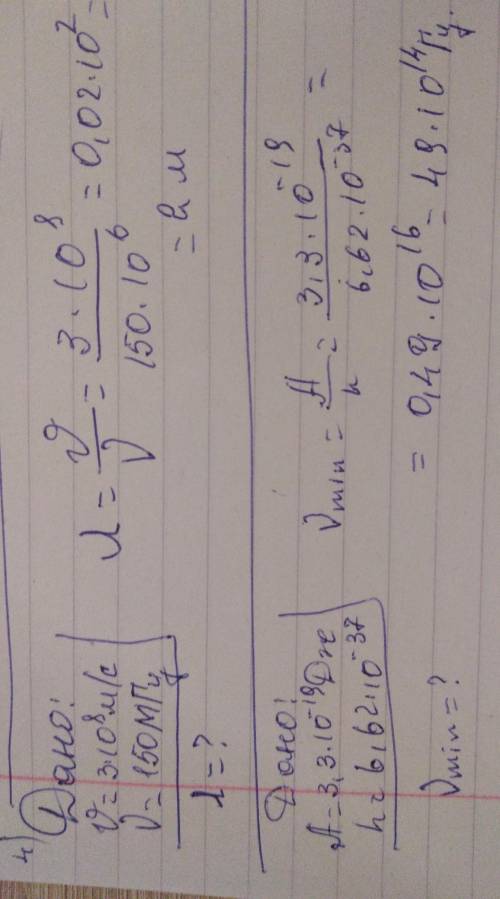 4)
Дано:
υ = 3·10⁸ м/с
ν = 150 МГц
λ = ?
λ = υ/ν = 3·10⁸/150·10⁶ = 0,02·10² =
= 2 м
Дано:
A = 3,3·10⁻¹⁹ Дж
h = 6,62·10⁻³⁷
νmin = ?
νmin = A/h = 3,3·10⁻¹⁹/6,62·10⁻³⁷ =
= 0,49·10¹⁶ = 49·10¹⁴ Гц.